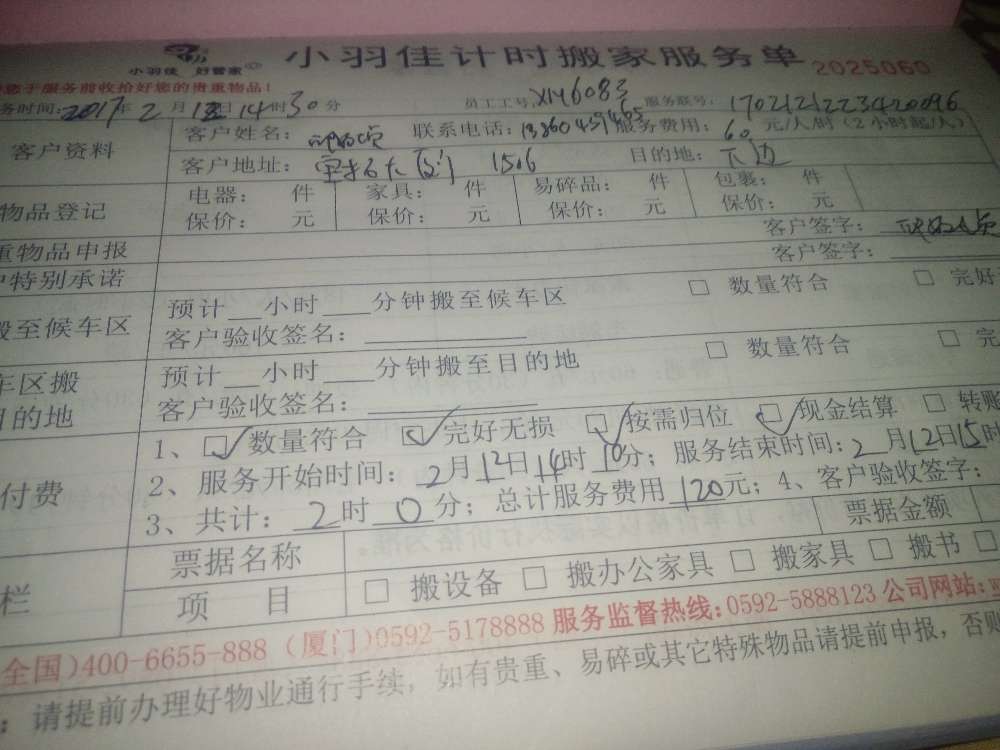 小羽佳 好管家
小羽佳计时搬家服务单 2025060
您于服务前收拾好您的贵重物品!
务时间: 2017年2月12日14时30分 员工工号: XM6083 服务联号: 1702121223420096
客户资料 客户姓名: 联系电话: 服务费用: 60 元/人/时(2小时起/人)
客户地址: 1506 目的地: 下边
物品登记 电器: 件 家具: 件 易碎品: 件 包裹: 件
保价: 元 保价: 元 保价: 元 保价: 元
重物品申报 客户签字:
特别承诺 客户签字:
搬至候车区 预计__小时___分钟搬至候车区 □ 数量符合 □ 完好
客户验收签名:
车区搬 预计__小时___分钟搬至目的地 □ 数量符合 □ 完
目的地 客户验收签名:
付费 1、☑数量符合 ☑完好无损 ☑按需归位 ☑现金结算 □ 转账
2、服务开始时间: 2月12日14时10分; 服务结束时间: 2月12日15时
3、共计: 2时0分; 总计服务费用120元; 4、客户验收签字:
栏 票据名称 票据金额
项 目 □ 搬设备 □ 搬办公家具 □ 搬家具 □ 搬书 □
全国)400-6655-888 (厦门)0592-5178888 服务监督热线:0592-5888123 公司网站:
: 请提前办理好物业通行手续, 如有贵重、易碎或其它特殊物品请提前申报, 否则